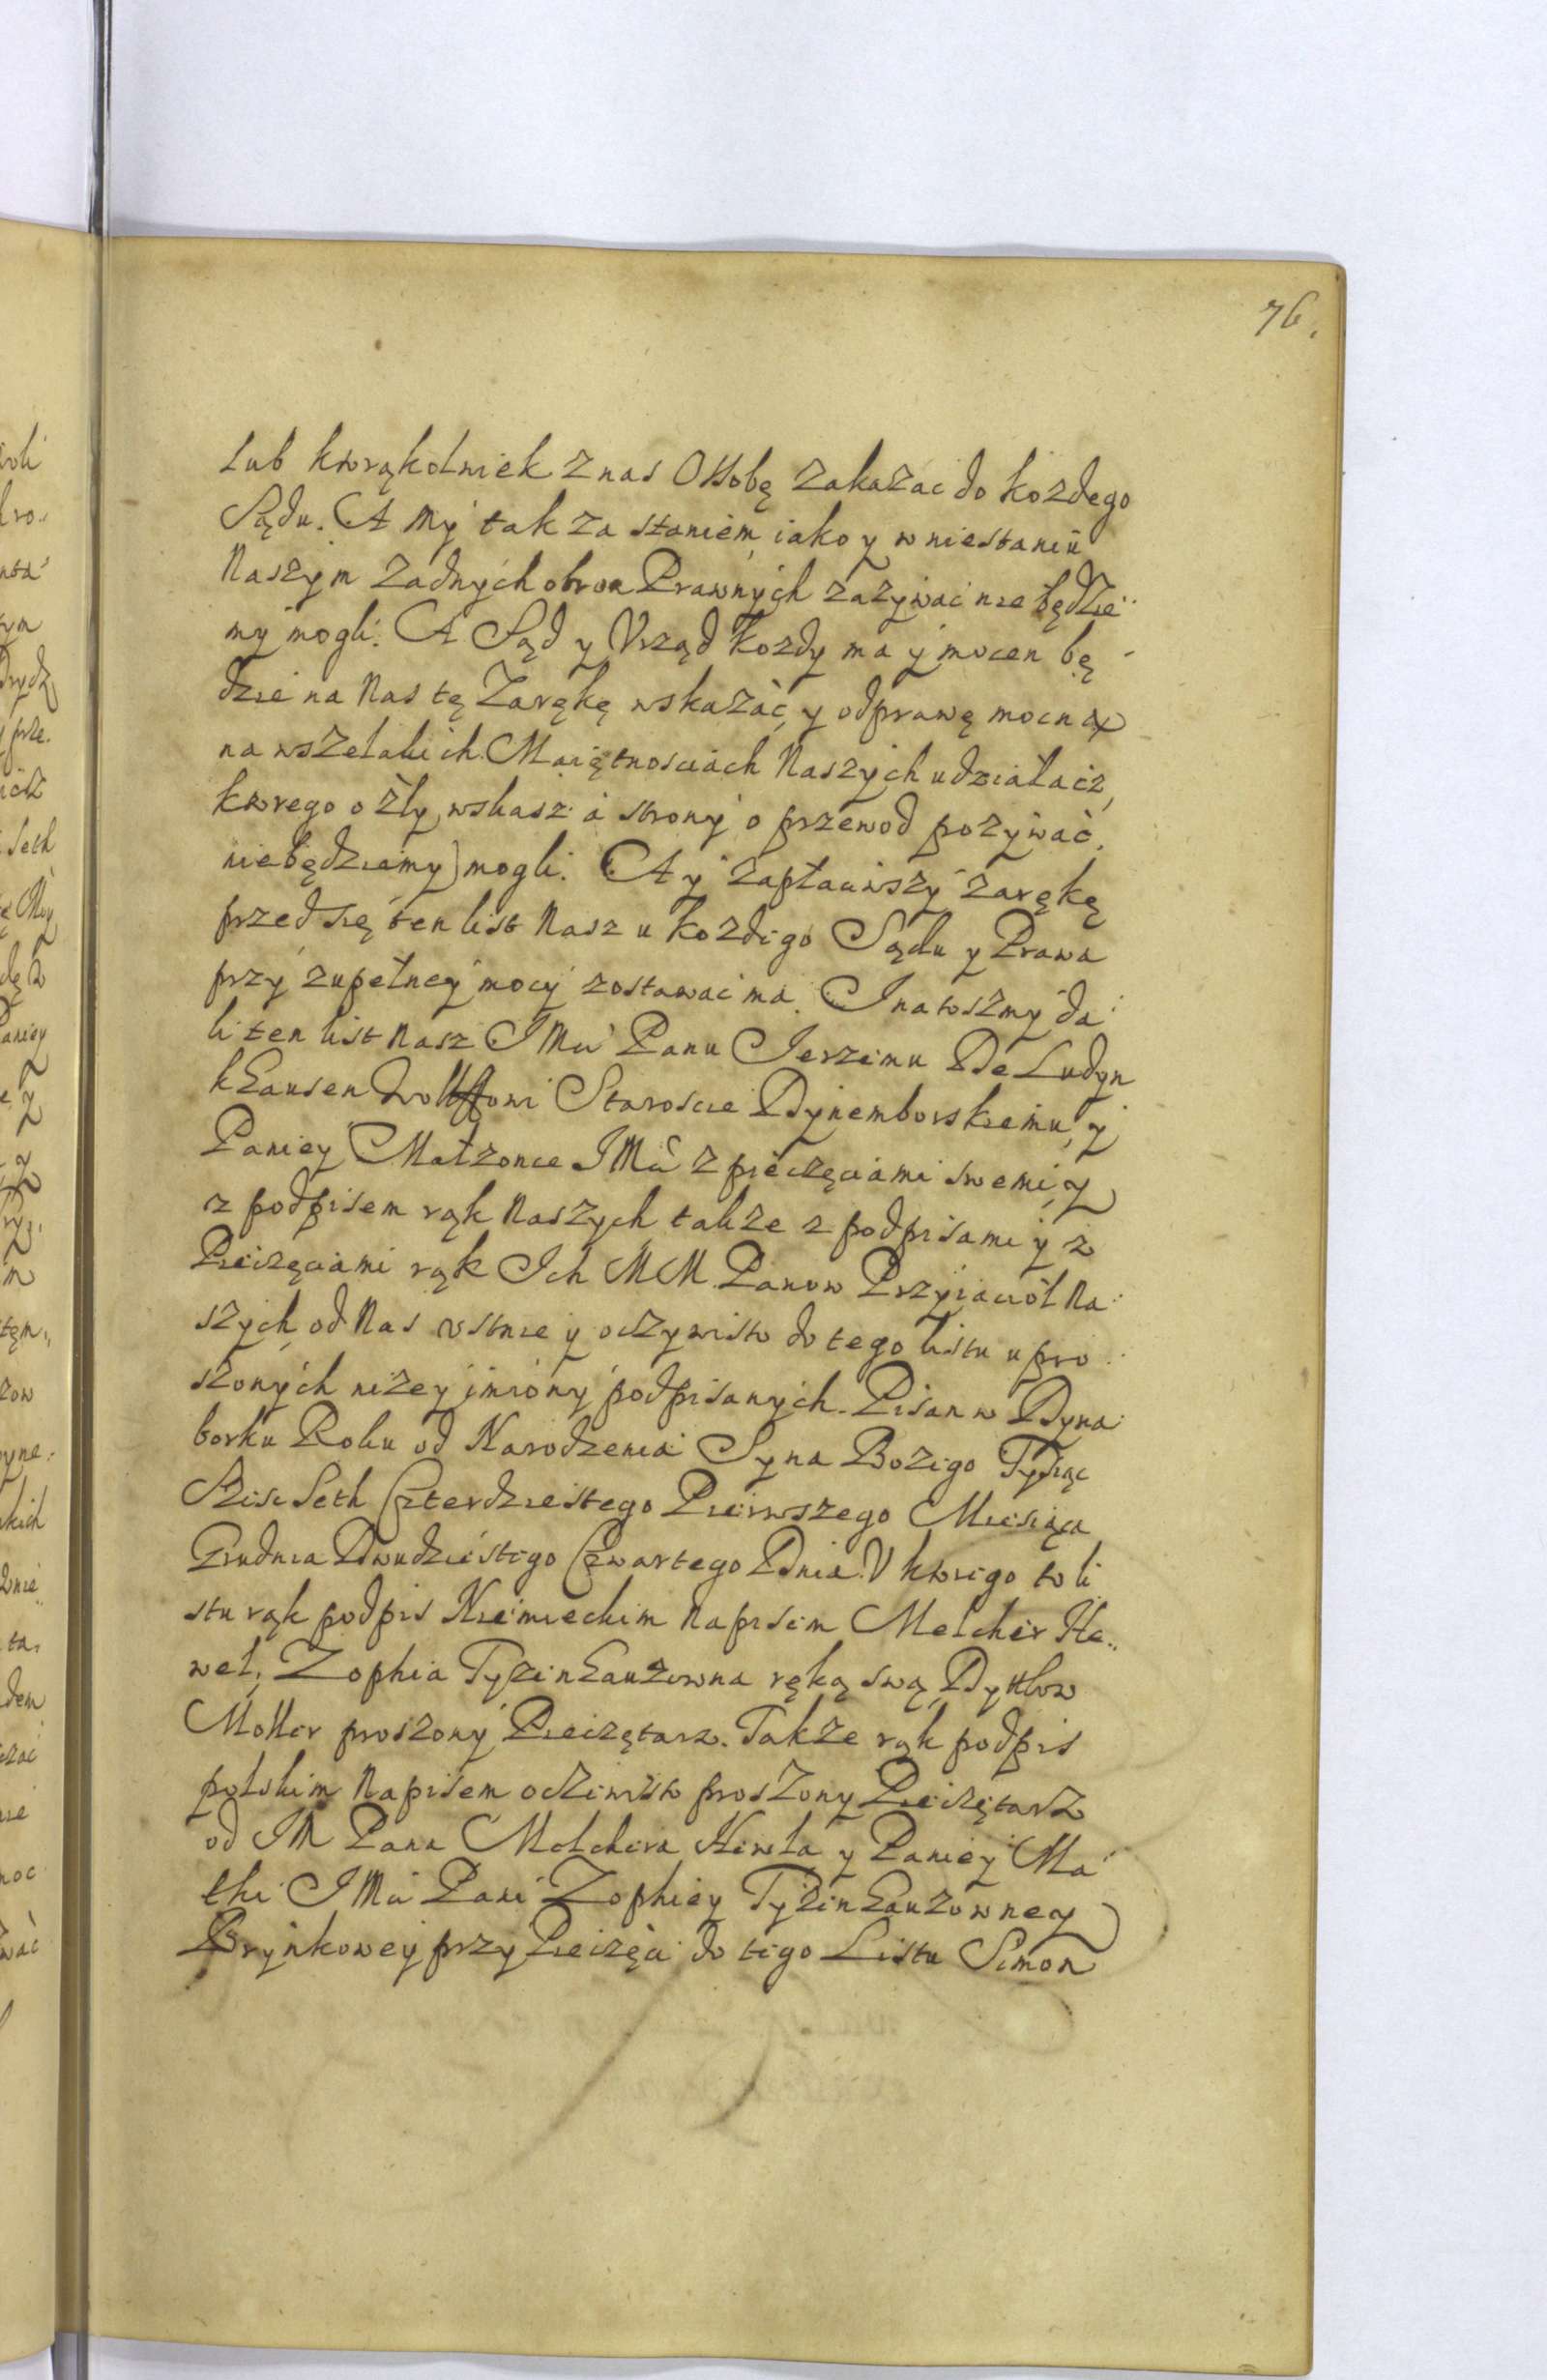 76.
Lub ktorąkolwiek z nas Ossobę zakazac do kozdego
Sądu. A My tak za staniem iako y w niestaniu
Naszym zadnych obron Prawnych zazywac nie będzie
my mogli. A Sąd y Vrząd kozdy ma y mocen bę
dzie na Nas tę Zarękę wskazac, y odprawę mocną
na wszelakich Maiętnosciach Naszych udziałać z
ktorego o zły wskasz a strony o przewod pozywac
niebędziemy mogli. A y zapłaciwszy zarękę
przedsię ten list Nasz u kozdego Sądu y Prawa
przy zupełney mocy zostawac ma. I na toszmy da
li ten list Nasz IMci Panu Ierzemu De Ludyn
kHausen Wolffowi Staroscie Dynemborskiemu, y
Paniey Małzonce IMci z pieczęciami swemi, y
z podpisem rąk Naszych także z podpisami y z
Pieczęciami rąk Ich MM. Panow Przyiacioł Na
szych od Nas vstnie y oczywisto do tego listu upro
szonych nizey imiony podpisanych. Pisan w Dyna
borku Roku od Narodzenia Syna Bozego Tysiąc
Szesc Seth Czterdziestego Pierwszego Miesiąca
Grudnia Dwudziestego Czwartego Dnia. V ktorego to li
stu rąk podpis Niemieckim Napisem Melcher He..
wel, Zophia Tyzinhauzowna ręką swą, Dytlow
Moller proszony Pieczętarz. Takze rąk podpis
polskim Napisem oczewisto proszony Pieczętarz
od IM Pana Melchera Hewla y Paniey Ma
tki IMci Pani Zophiey Tyzinhauzowney
Brynkowey przy Pieczęci do tego Listu Simon